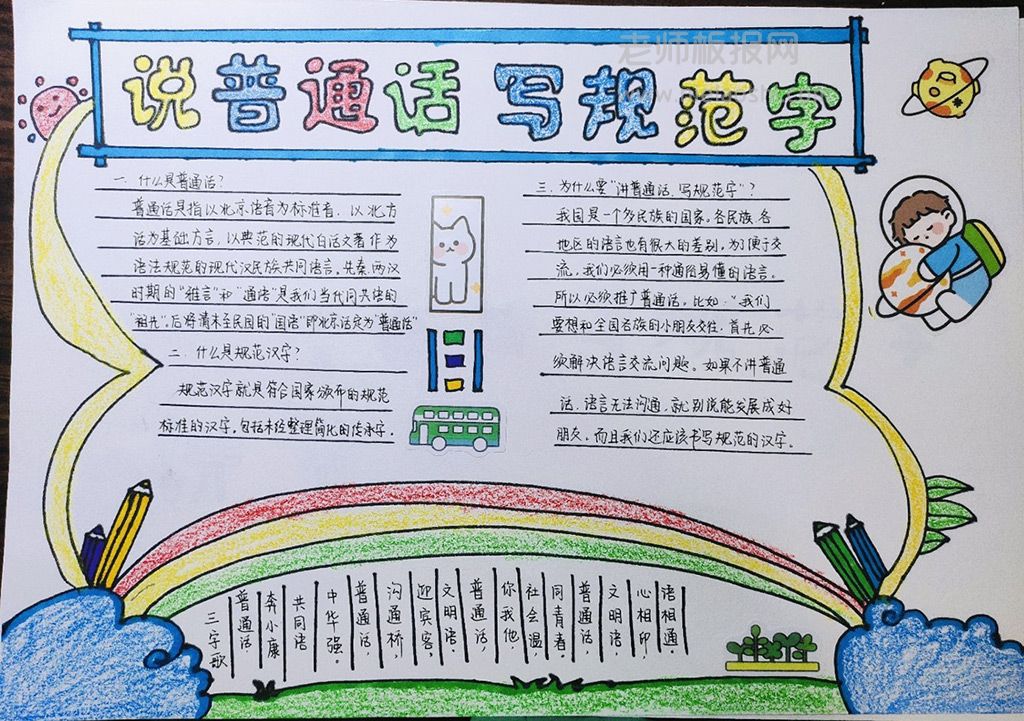 老师板报网
说普通话 写规范字
一、什么是普通话?
普通话是指以北京语音为标准音，以北方
话为基础方言，以典范的现代白话文著作为
语法规范的现代汉民族共同语言。先秦、两汉
时期的"雅言"和"通语"是我们当代同共语的
"祖先"。后将清末至民国的"国语"即北京话定为"普通话"
二、什么是规范汉字?
规范汉字就是符合国家颁布的规范
标准的汉字。包括未经整理简化的传承字.
三、为什么要"讲普通话、写规范字"?
我国是一个多民族的国家。各民族各
地区的语言也有很大的差别，为了便于交
流，我们必须用一种通俗易懂的语言。
所以必须推广普通话。比如:"我们
要想和全国各族的小朋友交往，首先必
须解决语言交流问题。如果不讲普通
话，语言无法沟通，就别说能发展成好
朋友，而且我们还应该书写规范的汉字。
语相通。
心相印，
文明语，
普通话，
同青春。
社会温，
你我他，
普通话，
文明语。
迎宾客，
沟通桥，
普通话，
中华强。
共同语
奔小康
普通话
三字歌